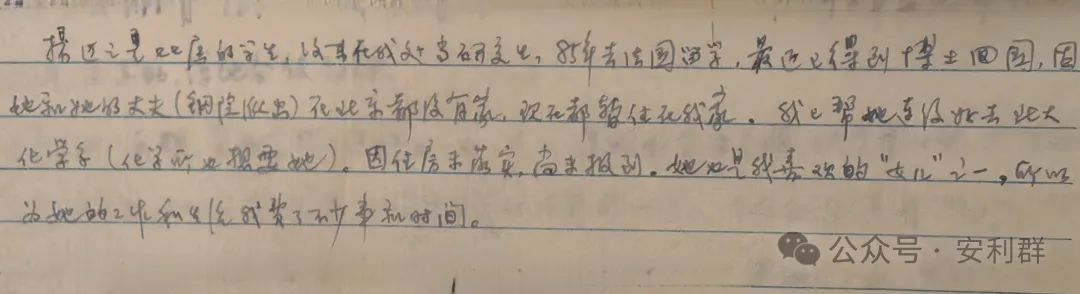 是七七届的学生,后来在我处当研究生,85年去法国留学,最近已得到博士回国,因
她和她的丈夫()在北京都没有家,现在都暂住在我家。我已帮她联系好去北大
化学系(化学所也想要她)。因住房未落实,尚未报到。她也是我喜欢的“女儿”之一,所以
为她的工作和生活我费了不少事和时间。
公众号·安利群